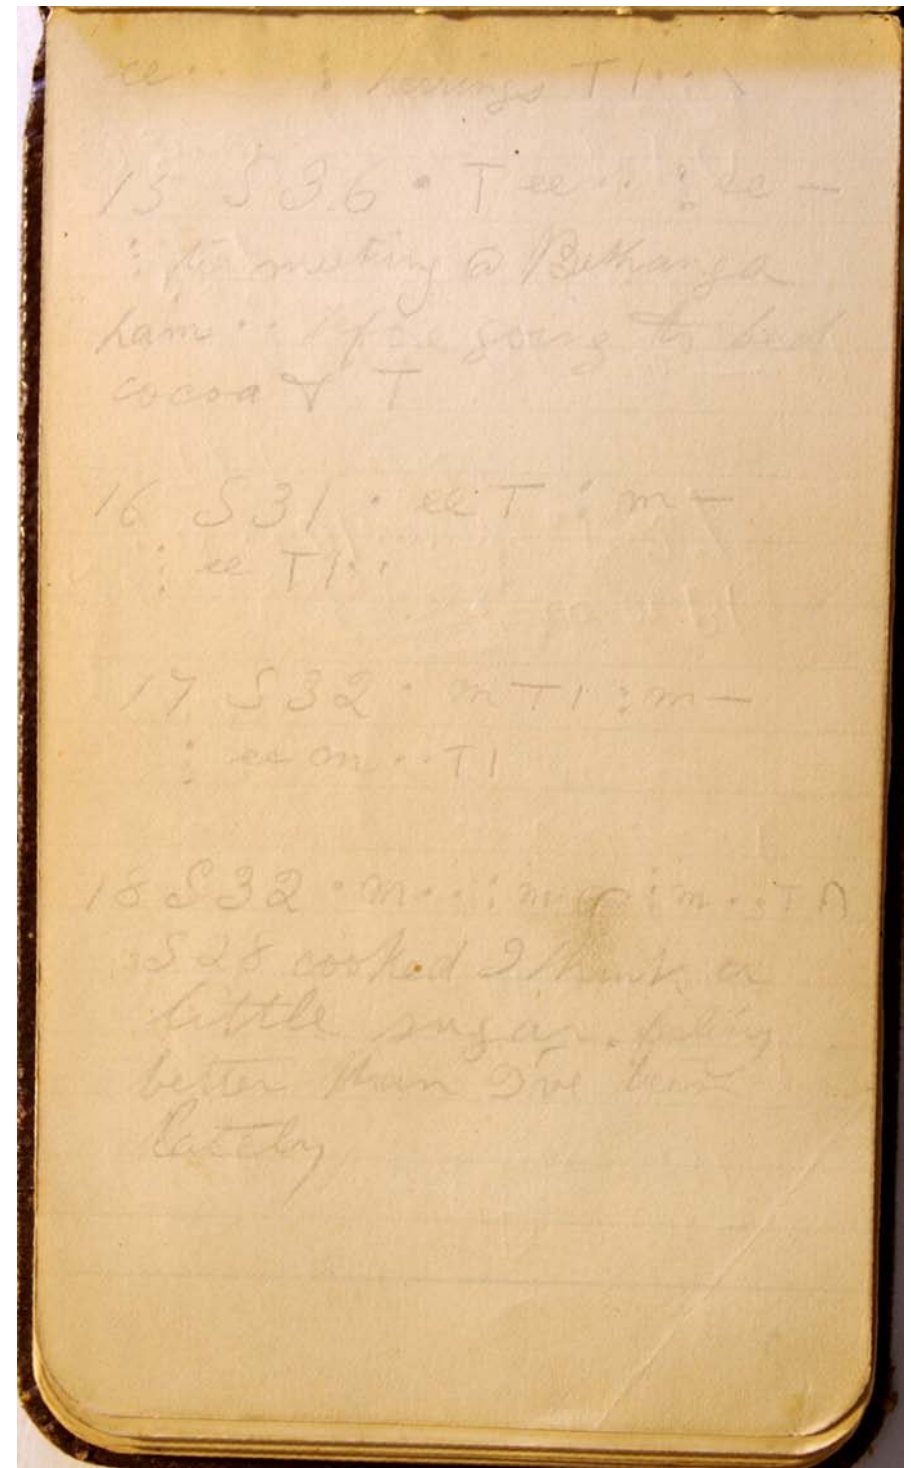 ee · · ⋮ herrings T 1 · : \
15 S 36 · T ee · : ⋮ ee —
⋮ meeting @ Bethanga
ham · : before going to bed
cocoa & T
16 S31 · ee T ⋮ m —
⋮ ee T1 · ·
17 S32 · m T 1 ⋮ m —
⋮ ee m · · T1
18 S32 · m · · ⋮ m ⋮ m · T
S28 cooked I think a
little sugar. feeling
better than I've been
lately